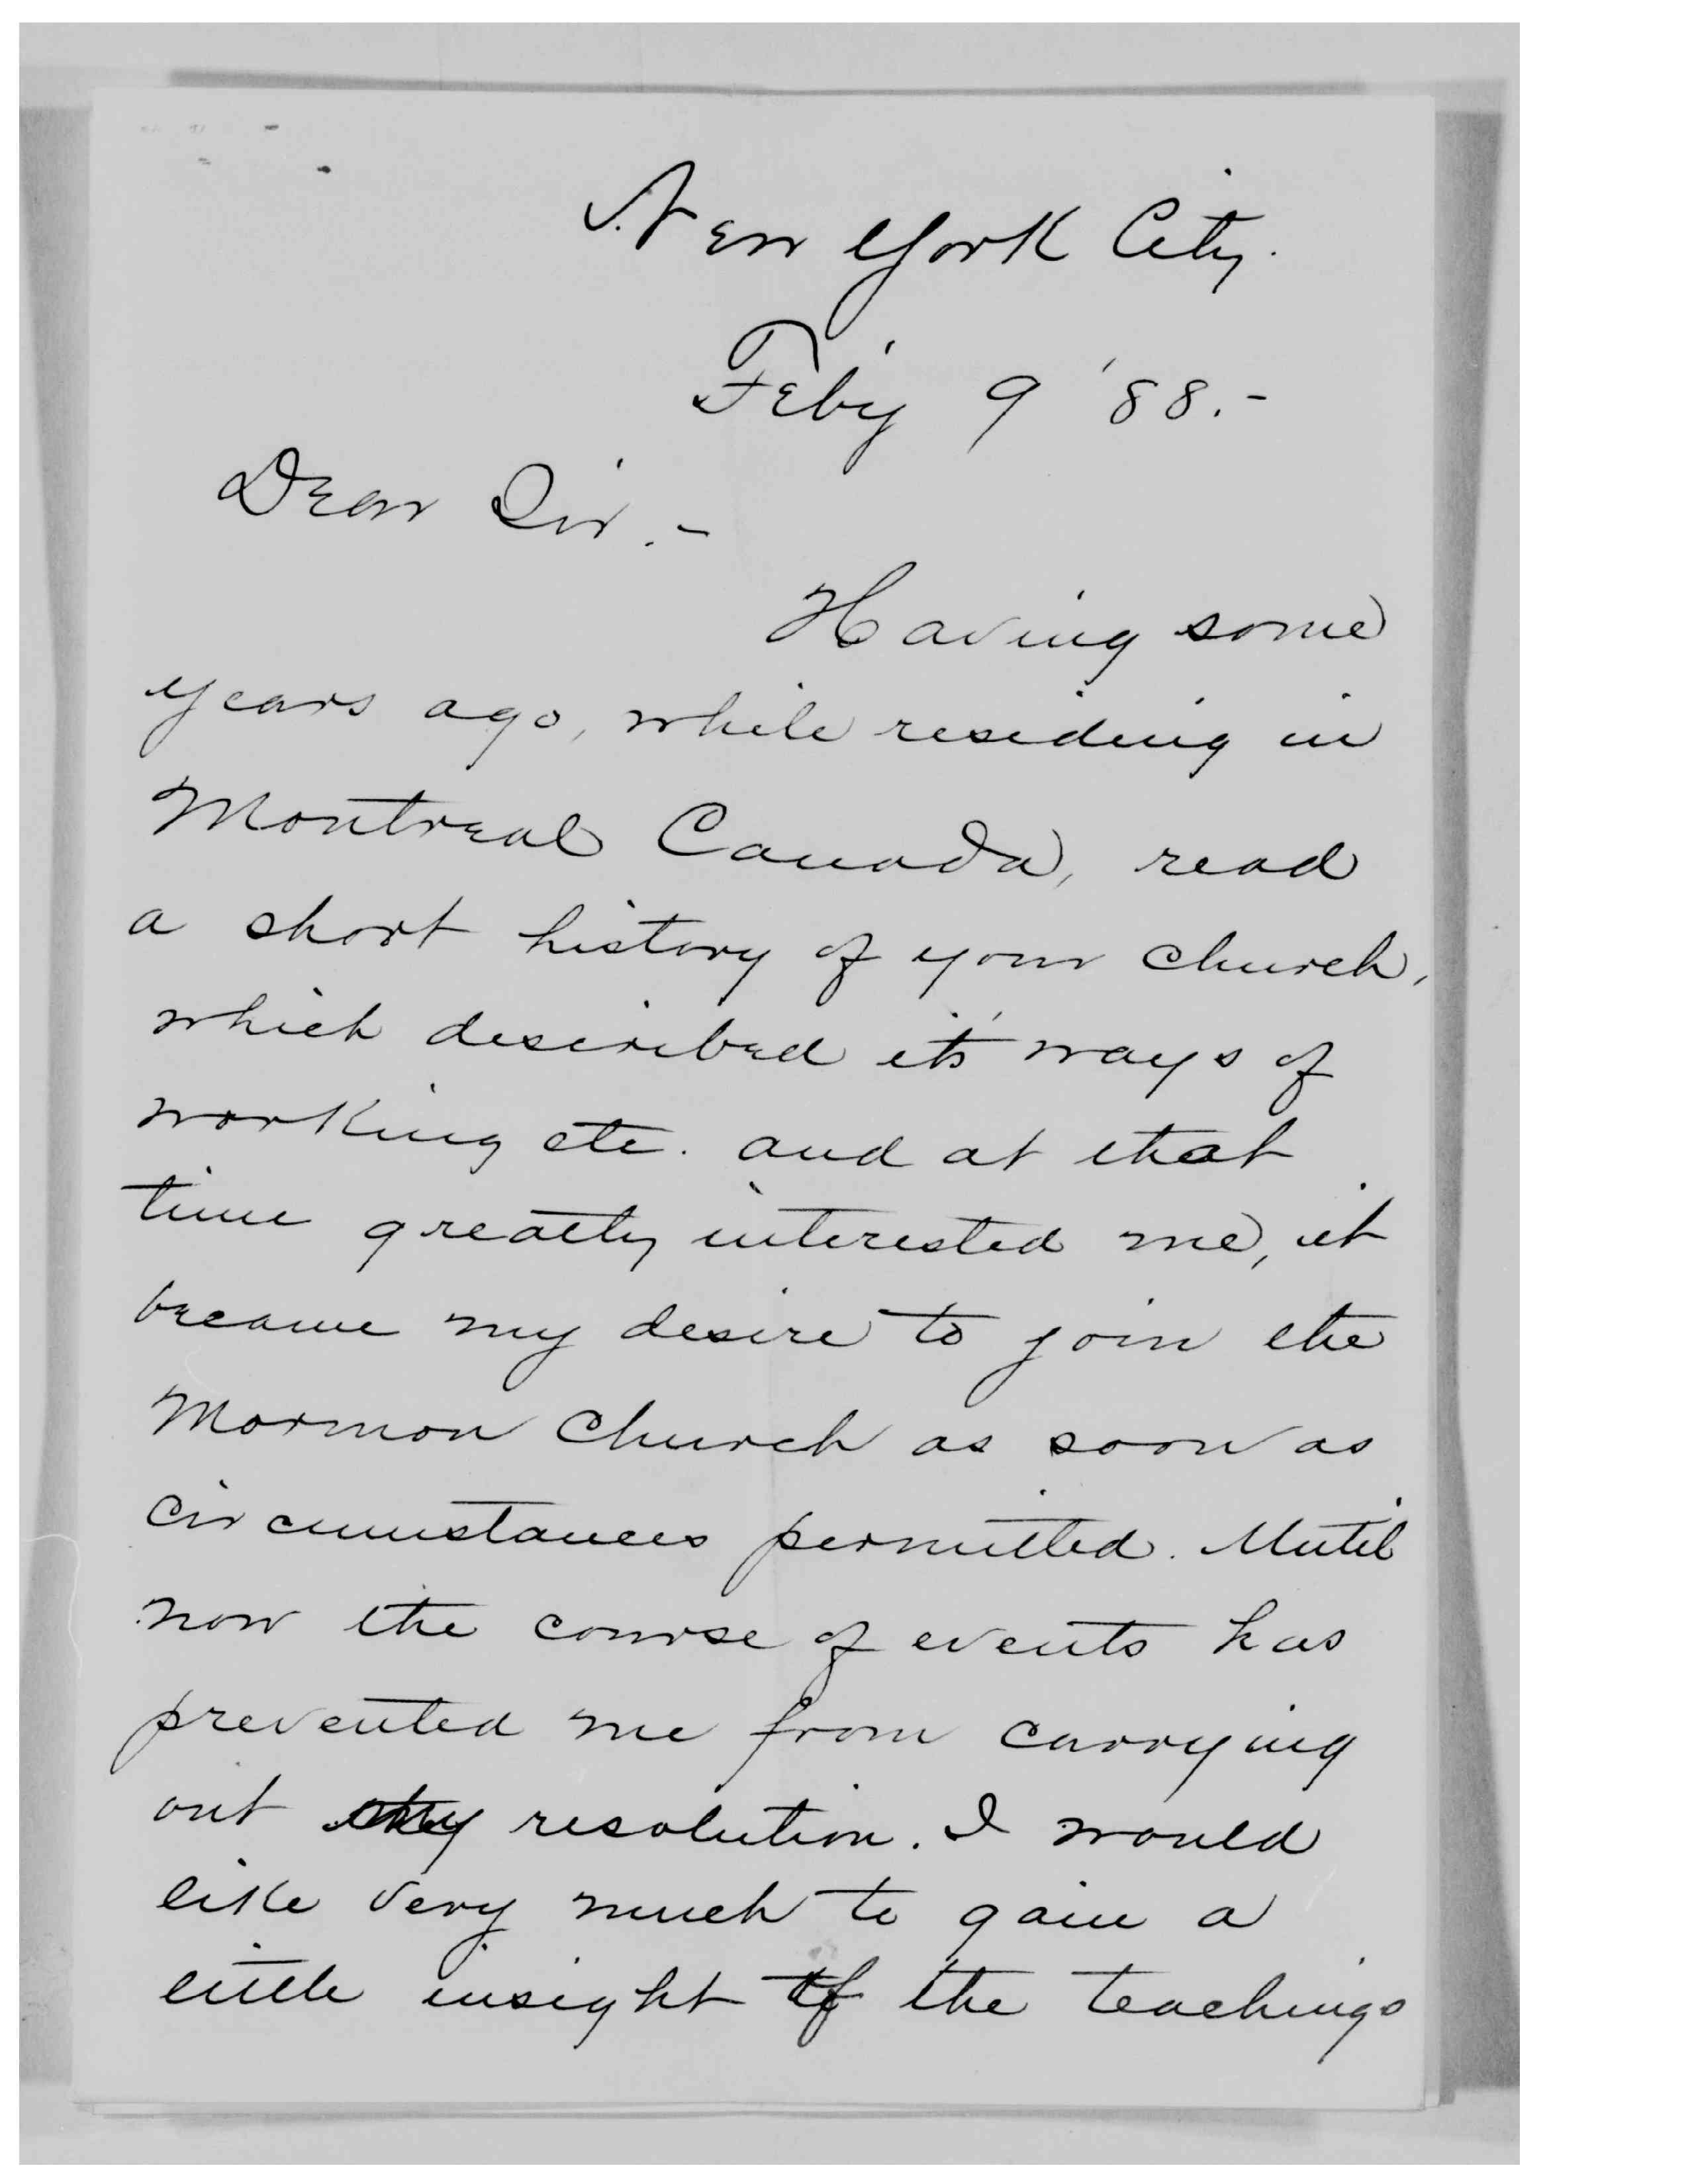 New York City.
Feby 9 '88.-
Dear Sir.-
Having some
years ago, while residing in
Montreal Canada, read
a short history of your church,
which described it's ways of
working etc. and at that
time greatly interested me, it
became my desire to join the
Mormon Church as soon as
circumstances permitted. Until
now the course of events has
prevented me from carrying
out my resolution. I would
like very much to gain a
little insight of the teachings